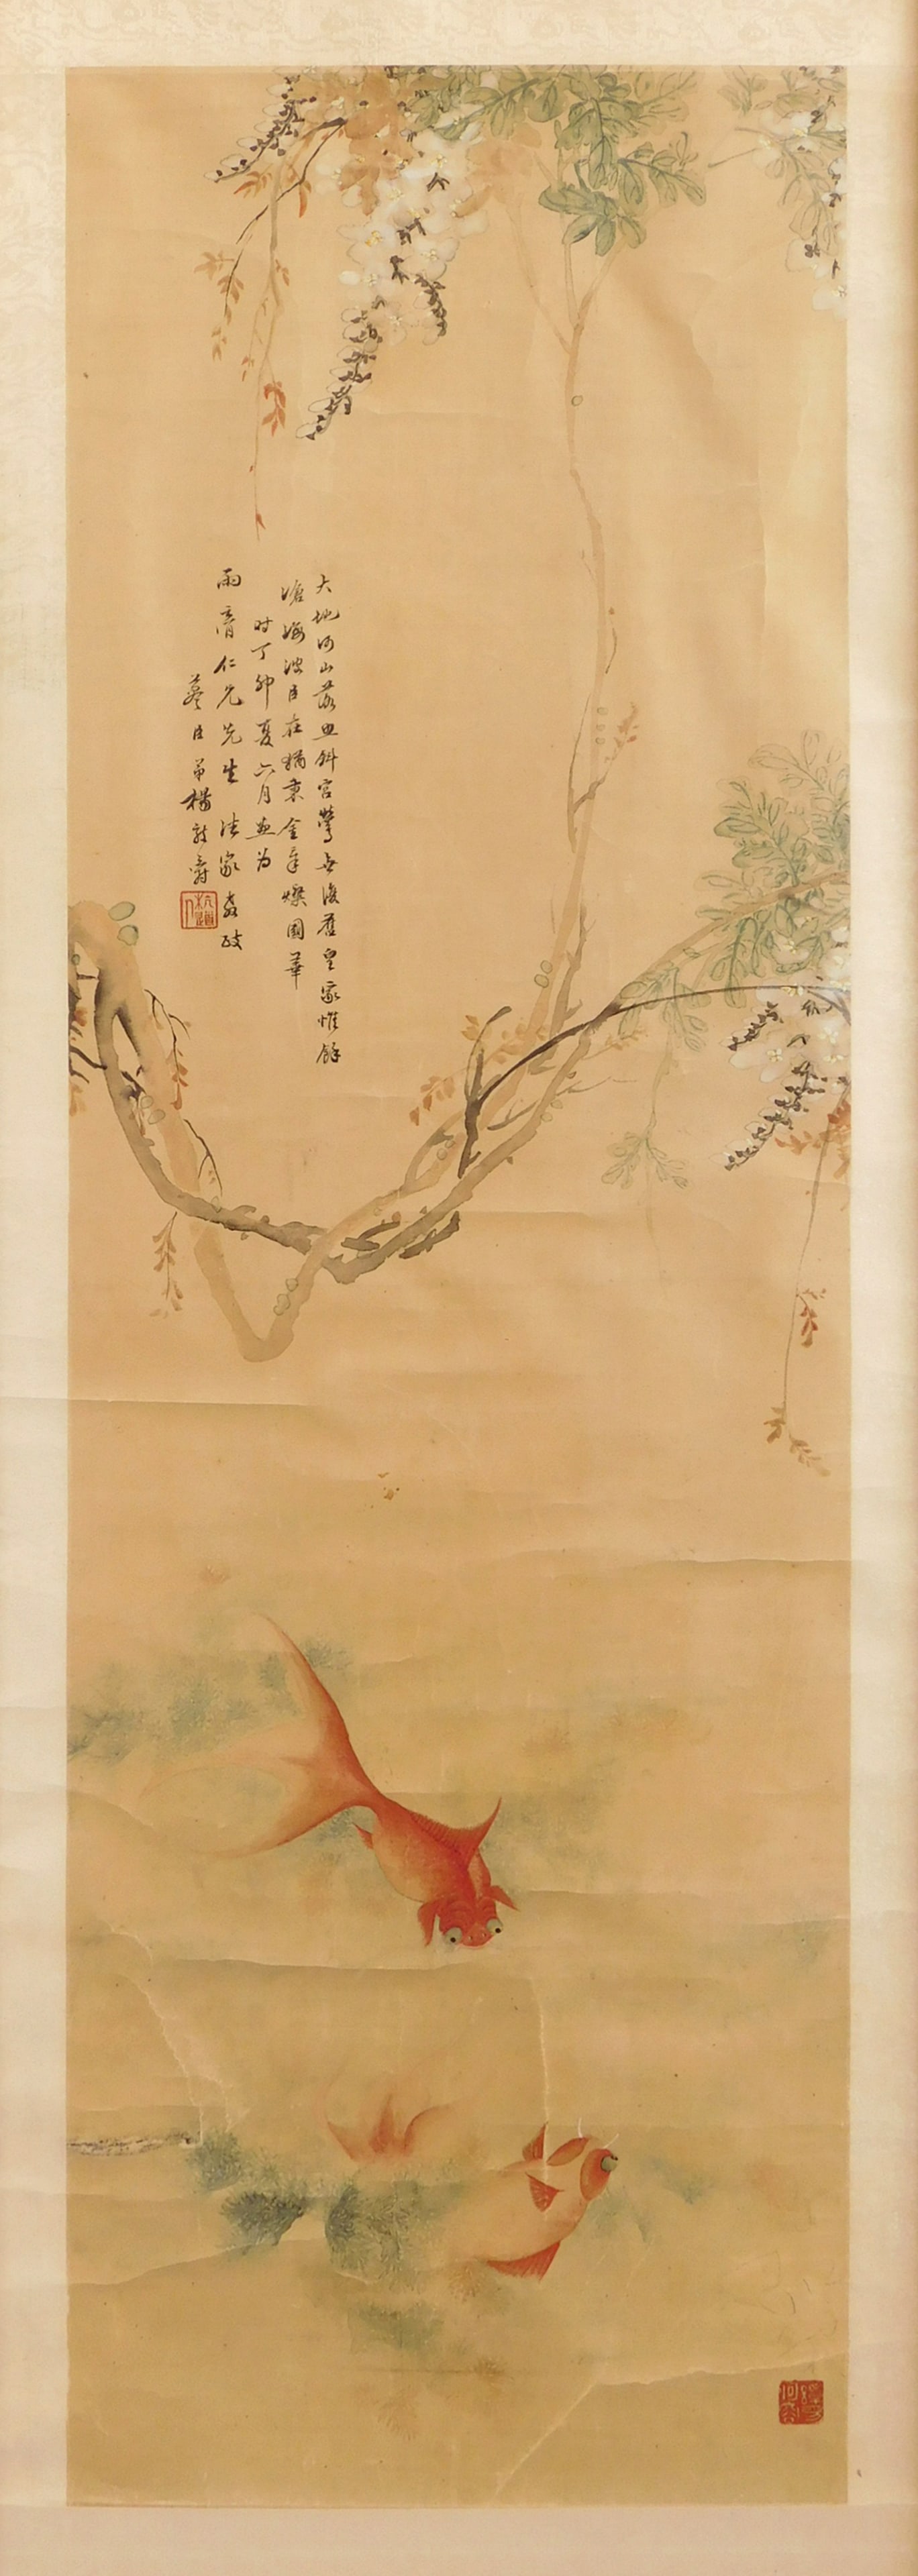 大地河山落照斜宮鶯無復舊皇家惟餘
滄海波臣在猶東金章燦國華
時丁卯夏六月畫為
雨膏仁兄先生 法家教政
弟楊